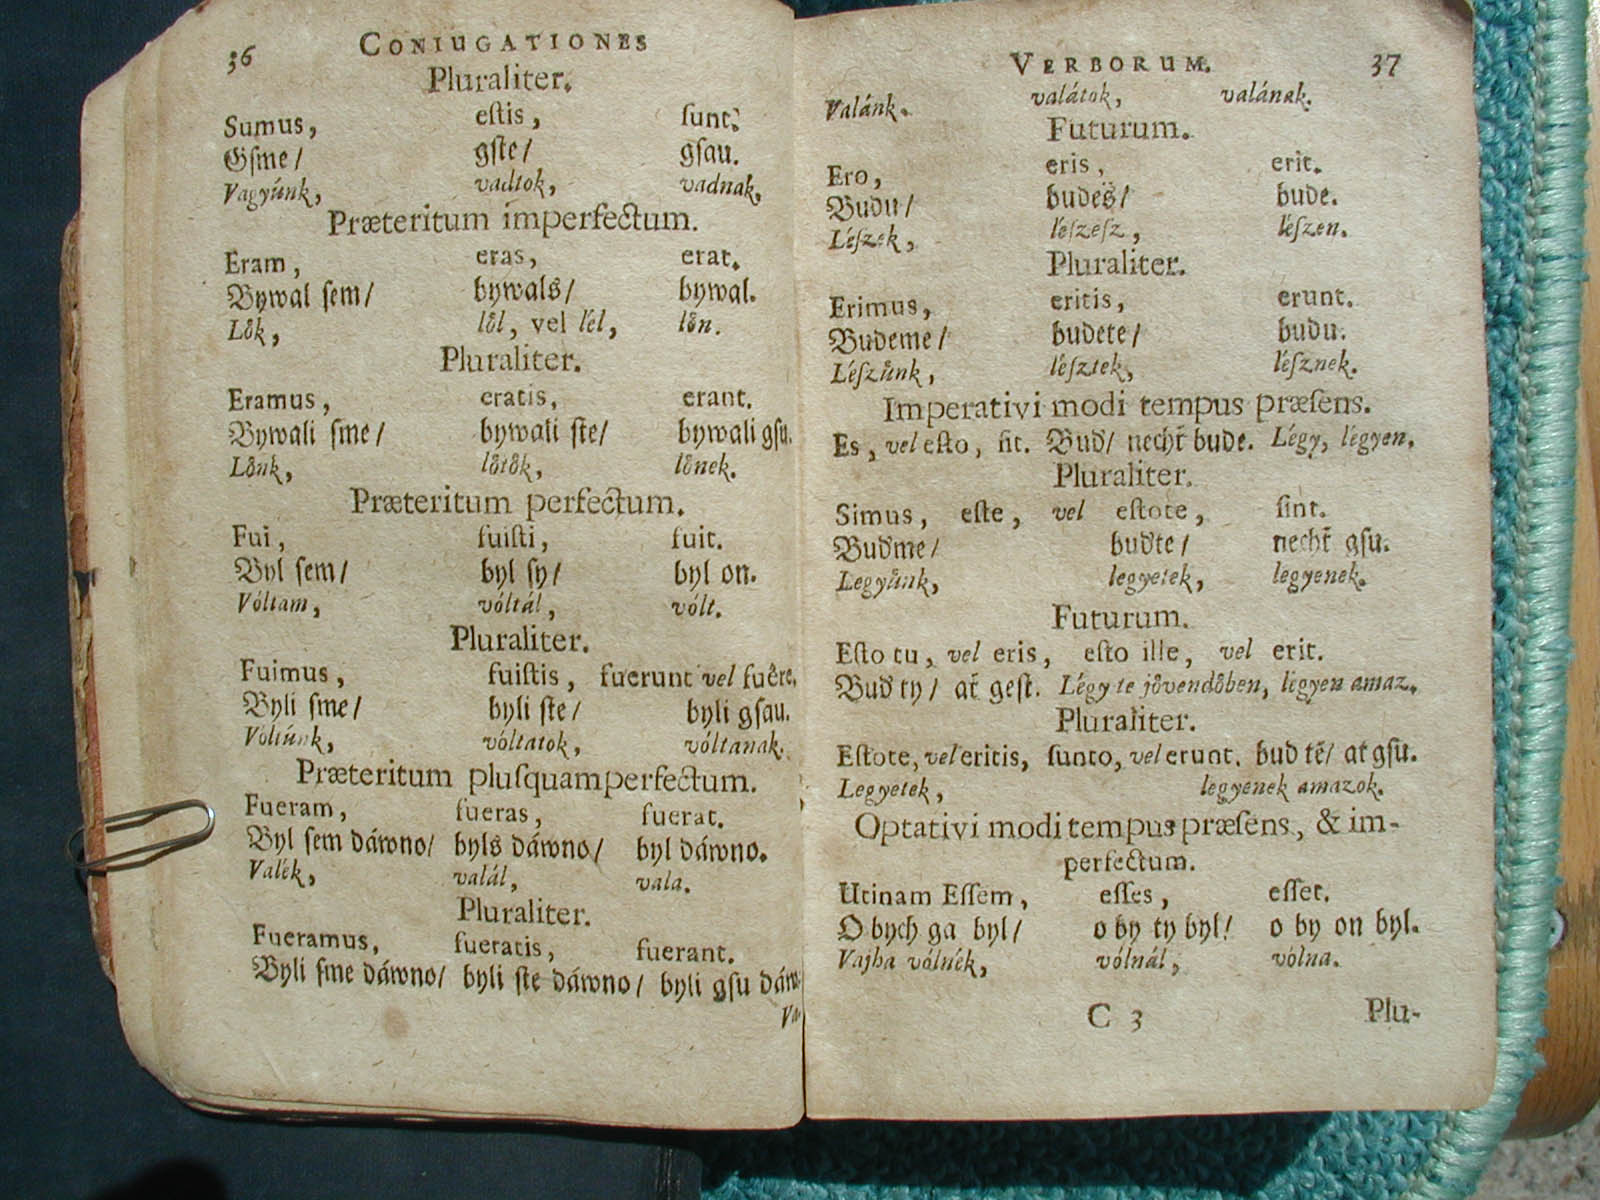 36 CONIUGATIONES
Pluraliter.
Sumus, eſtis, ſunt.
Gſme / gſte / gſau.
Vagyúnk, vadtok, vadnak,
Præteritum imperfectum.
Eram, eras, erat.
Bywal ſem / bywals / bywal.
Lo̊k, lo̊l, vel lél, lo̊n.
Pluraliter.
Eramus, eratis, erant.
Bywali ſme / bywali ſte / bywali gſu.
Lo̊nk, lo̊to̊k, lo̊nek.
Præteritum perfectum.
Fui, fuiſti, fuit.
Byl ſem / byl ſy / byl on.
Vóltam, vóltál, vólt.
Pluraliter.
Fuimus, fuiſtis, fuerunt vel fuêre.
Byli ſme / byli ſte / byli gſau.
Vóltúnk, vóltatok, vóltanak.
Præteritum pluſquamperfectum.
Fueram, fueras, fuerat.
Byl ſem dáwno / byls dáwno / byl dáwno.
Valék, valál, vala.
Pluraliter.
Fueramus, fueratis, fuerant.
Byli ſme dáwno / byli ſte dáwno / byli gſu dáw
Va
VERBORUM. 37
Valánk. valátok, valának.
Futurum.
Ero, eris, erit.
Budu / budeš / bude.
Léſzek, léſzeſz, léſzen.
Pluraliter.
Erimus, eritis, erunt.
Budeme / budete / budu.
Léſzu̇nk, léſztek, léſznek.
Imperativi modi tempus præſens.
Es, vel eſto, ſit. Bud' / nechť bude. Légy, légyen.
Pluraliter.
Simus, eſte, vel eſtote, ſint.
Buďme / buďte / nechť gſu.
Legyu̇nk, legyetek, legyenek.
Futurum.
Eſto tu, vel eris, eſto ille, vel erit.
Buď ty / ať geſt. Légy te jo̊vendo̊ben, légyen amaz.
Pluraliter.
Eſtote, vel eritis, ſunto, vel erunt. bud tě / at gſu.
Legyetek, legyenek amazok.
Optativi modi tempus præſens, & im-
perfectum.
Utinam Eſſem, eſſes, eſſet.
O bych ga byl / o by ty byl / o by on byl.
Vajha vólnék, vólnál, vólna.
C 3 Plu-